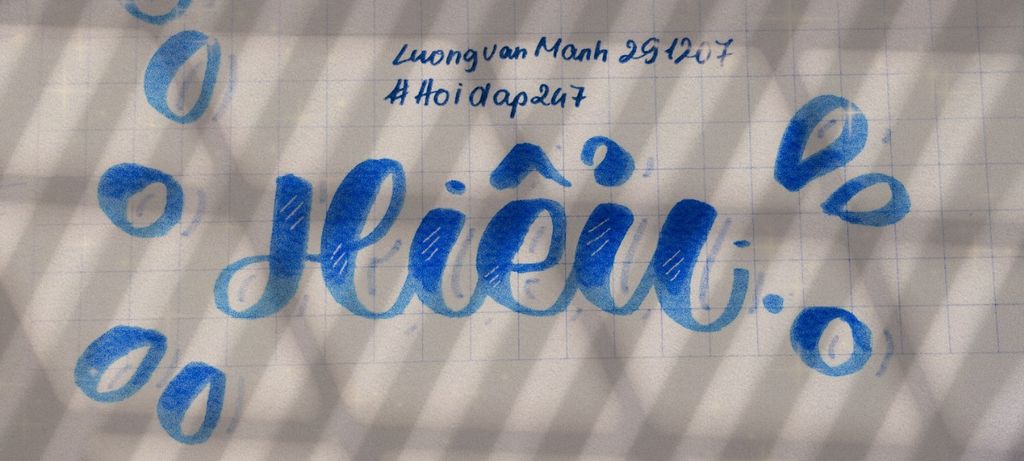 LuongvanManh 291207
#Hoidap247
Hiểu.